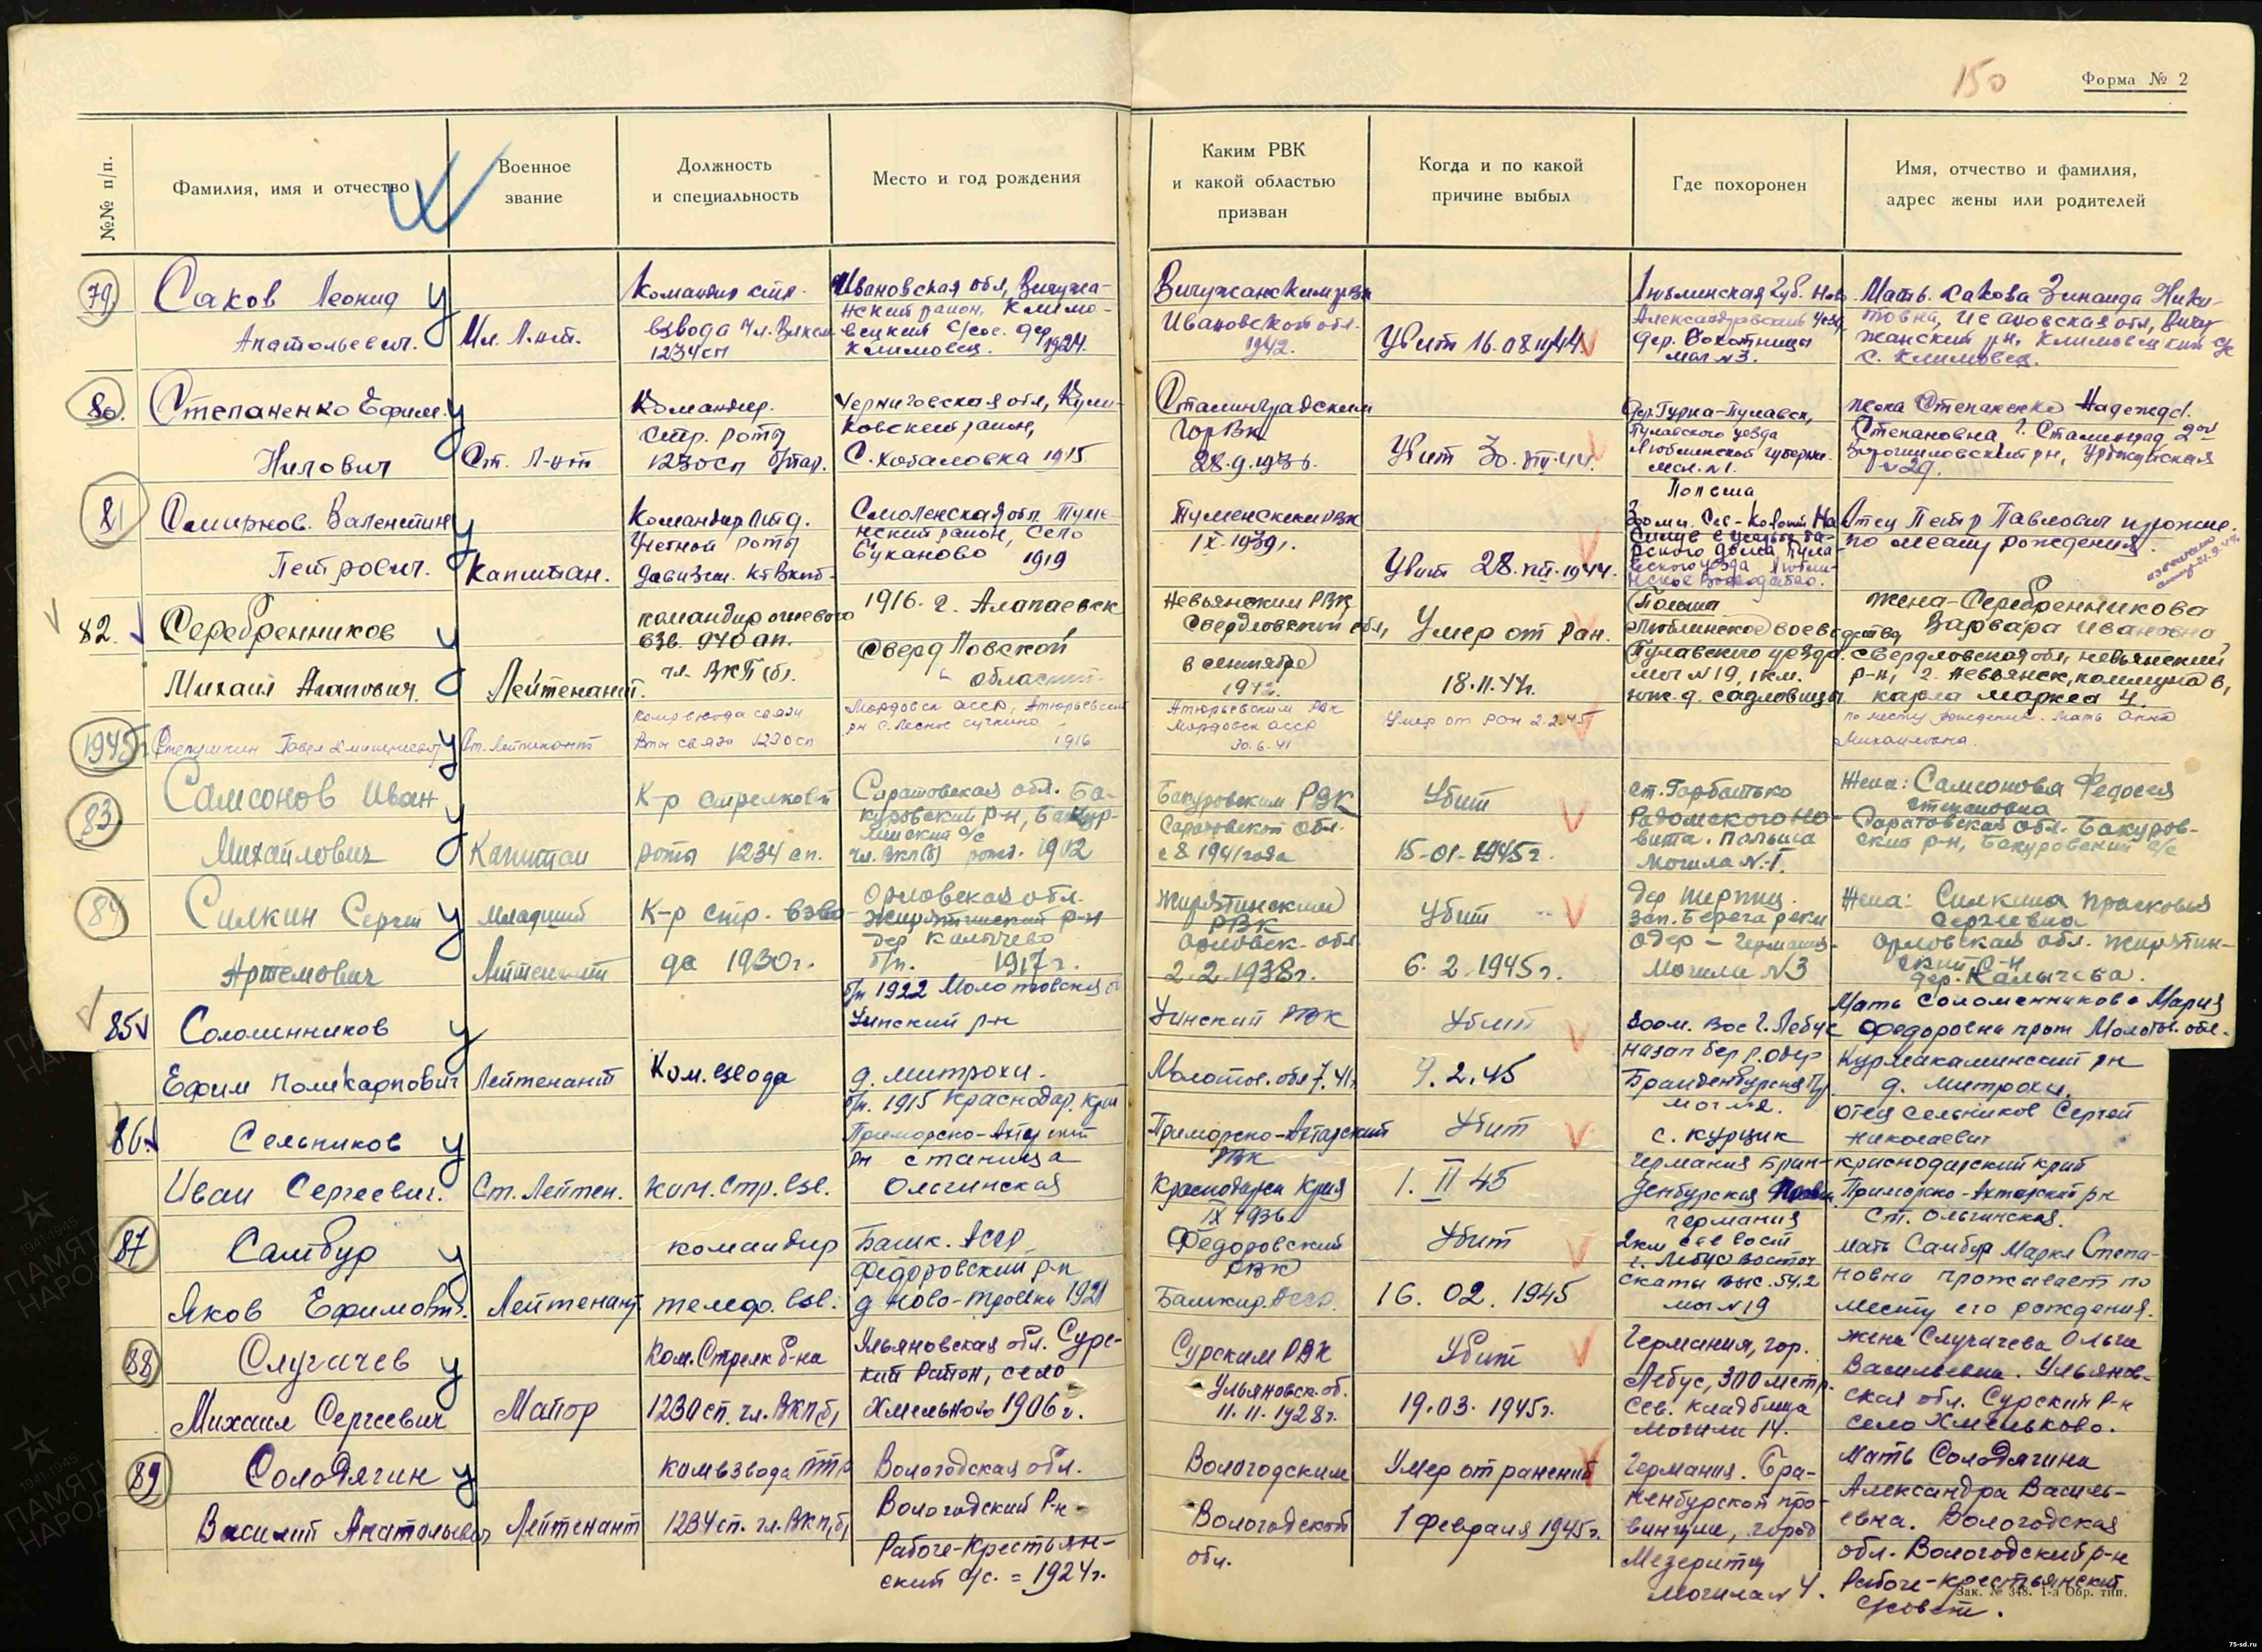 150
Форма № 2
№№ п/п.
Фамилия, имя и отчество
Военное
звание
Должность
и специальность
Место и год рождения
Каким РВК
и какой областью
призван
Когда и по какой
причине выбыл
Где похоронен
Имя, отчество и фамилия,
адрес жены или родителей
79
Саков Леонид
Анатольевич.
Мл. Л-нт.
Командир стр.
взвода Чл. Влксм
1234 сп
Ивановская обл, Вичужа-
нский район, Климо-
вецкий с/сов. дер
Климовец. 1924.
Вичужанским рвк
Ивановской обл.
1942.
Убит 16.08.1944
Люблинская губ. Ново
Александровский уезд,
дер. Вохотницы
мог N3.
Мать. Сакова Зинаида Ники-
товна, Ивановская обл, Вичу
жанский рн, Климовецкий с/с
с. Климовец.
80.
Степаненко Ефим.
Нилович
Ст. Л-нт
Командир.
Стр. роты
1230 сп б/пар.
Черниговская обл, Кули-
ковский район,
С. Ковалевка 1915
Сталинградским
ГорВК
28.9.1936.
Убит 30.VIII.44.
Дер. Гурка-Пулавск,
Пулавского уезда
Люблинской губерни.
мог. N1.
Польша
Жена Степаненко Надежда.
Степановна, г. Сталинград 2ой
Ворошиловский рн,
N29.
81
Смирнов. Валентин
Петрович.
Капитан.
Командир
роты
дивизии. КтВкпб-
Смоленская обл. Туме-
нский район, Село
Буканово 1919
Туменским РВК
IX.1939г.
Убит 28.VIII.1944.
Отец Петр Павлович прожив.
по месту рождения.
82.
Серебренников
Михаил Агапович.
Лейтенант.
командир огневого
взв. 940 ап.
чл. ВКП(б).
1916. г. Алапаевск
Свердловской
области.
Невьянским РВК
Свердловской обл,
в сентябре
Умер от ран.
18.11.44г.
Польша
Люблинское воеводства
Пулавского уезда.
мог N19, 1км.
юж. д. Садловицы
жена-Серебренникова
Варвара Ивановна,
Свердловская обл, Невьянский
р-н, г. Невьянск, коммуна 6,
Карла Маркса 4.
1945г.
Степушкин Павел Дмитриевич
Ст. Лейтенант
Ком. взвода связи
1230 сп
Мордовск АССР, Атюрьевский
рн с. Лесное Сучкино
1916
Атюрьевским РВК
Мордовск АССР
30.6.41
Умер от ран 2.2.45
По месту рождения. Мать Анна
Михайловна.
83
Самсонов Иван
Михайлович
Капитан
К-р стрелковой
роты 1234 сп.
Саратовская обл. Ба-
куровский р-н, Бакур-
ский с/с
чл. ВКП(б) рожд. 1902
Бакуровским РВК
Саратовской обл.
с 8 1941 года
Убит
15-01-1945г.
ст. Горбатько
Радомского по-
вита. Польша
Могила N-1.
Жена: Самсонова Федосея
Степановна
Саратовская обл. Бакуров-
ский р-н, Бакуровский с/с
84
Силкин Сергей
Артемович
Младший
Лейтенант
К-р стр. взво-
да 1230г.
Орловская обл.
Жирятинский р-н
дер Калычево
б/п. 1917г.
Жирятинский
РВК
Орловск. обл
2.2.1938г.
Убит
6.2.1945г.
дер
зап. берега реки
Одер - Германия-
Могила N3
Жена: Силкина Прасковья
Сергеевна
Орловская обл. Жирятин-
ский р-н
дер. Калычева.
85
Соломенников
Ефим Поликарпович
Лейтенант
Ком. взвода
б/п 1922 Молотовская о
Уинский р-н
д. Митрохи.
Уинский РВК
Молотов. обл 7.41г.
Убит
9.2.45
800м. Вос г. Лебус
на зап бер р. Одер
Бранденбургская Пр
мог N2.
Мать Соломенникова Мария
Федоровна прож Молотов. обл.
д. Митрохи.
86.
Сельников
Иван Сергеевич.
Ст. Лейтен.
ком. Стр. взв.
б/п. 1915 Краснодар. Край
Приморско-Ахтарский
рн станица
Ольгинская
Приморско-Ахтарский
РВК
Краснодарск Края
IX 1936г
Убит
1. II 45
с. Курцик
Германия Бран-
денбурская Прови
Отец Сельников Сергей
Николаевич
Краснодарский край
Приморско-Ахтарский рн
ст. Ольгинская.
87
Самбур
Яков Ефимович.
Лейтенант
командир
телеф. взв.
Башк. АССР
Федоровский р-н
д Ново-Троевка 1921
Федоровский
РВК
Башкир. АССР.
Убит
16. 02. 1945
Германия
2км сев вост
г. Лебус восточ
скаты выс. 54.2
мог N19
мать Самбур Марья Степа-
новна проживает по
месту его рождения.
88
Слугачев
Михаил Сергеевич
Майор
Ком. Стрелк б-на
1230 сп. чл. ВКП(б)
Ульяновская обл. Сурс-
кий Район, село
Хмельково 1906г.
Сурским РВК
Ульяновск. об.
11.11.1928г.
Убит
19.03.1945г.
Германия, гор.
Лебус, 300 метр.
Сев. Кладбища
Могила 14.
жена Слугачева Ольга
Васильевна. Ульянов-
ская обл. Сурский Р-н
село Хмельково.
89
Солодягин
Василий Анатольевич
Лейтенант
Ком взвода ПТР
1234 сп. чл. ВКП(б)
Вологодская обл.
Вологодский Р-н
Рабоче-Крестьян-
ский с/с. = 1924г.
Вологодским
Вологодской
обл.
Умер от ранений
1 февраля 1945г.
Германия. Бра-
ненбурской про-
винции, город
Мезеритц
Могила N 4.
Мать Солодягина
Александра Василь-
евна. Вологодская
обл. Вологодский р-н
Рабоче-Крестьянский
с/совет.
Зак. № 348. 1-я Обр. тип.
75-sd.ru